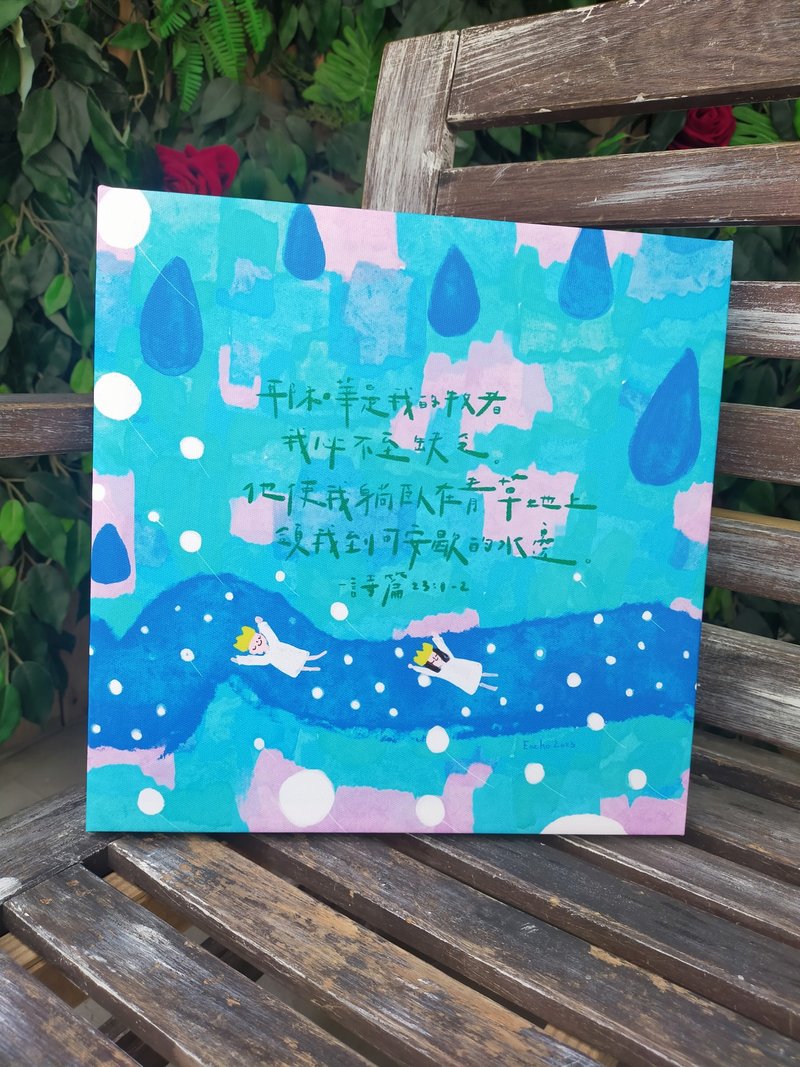 耶和華是我的牧者
我必不至缺乏。
他使我躺臥在青草地上
領我到可安歇的水邊。
─詩篇23:1-2